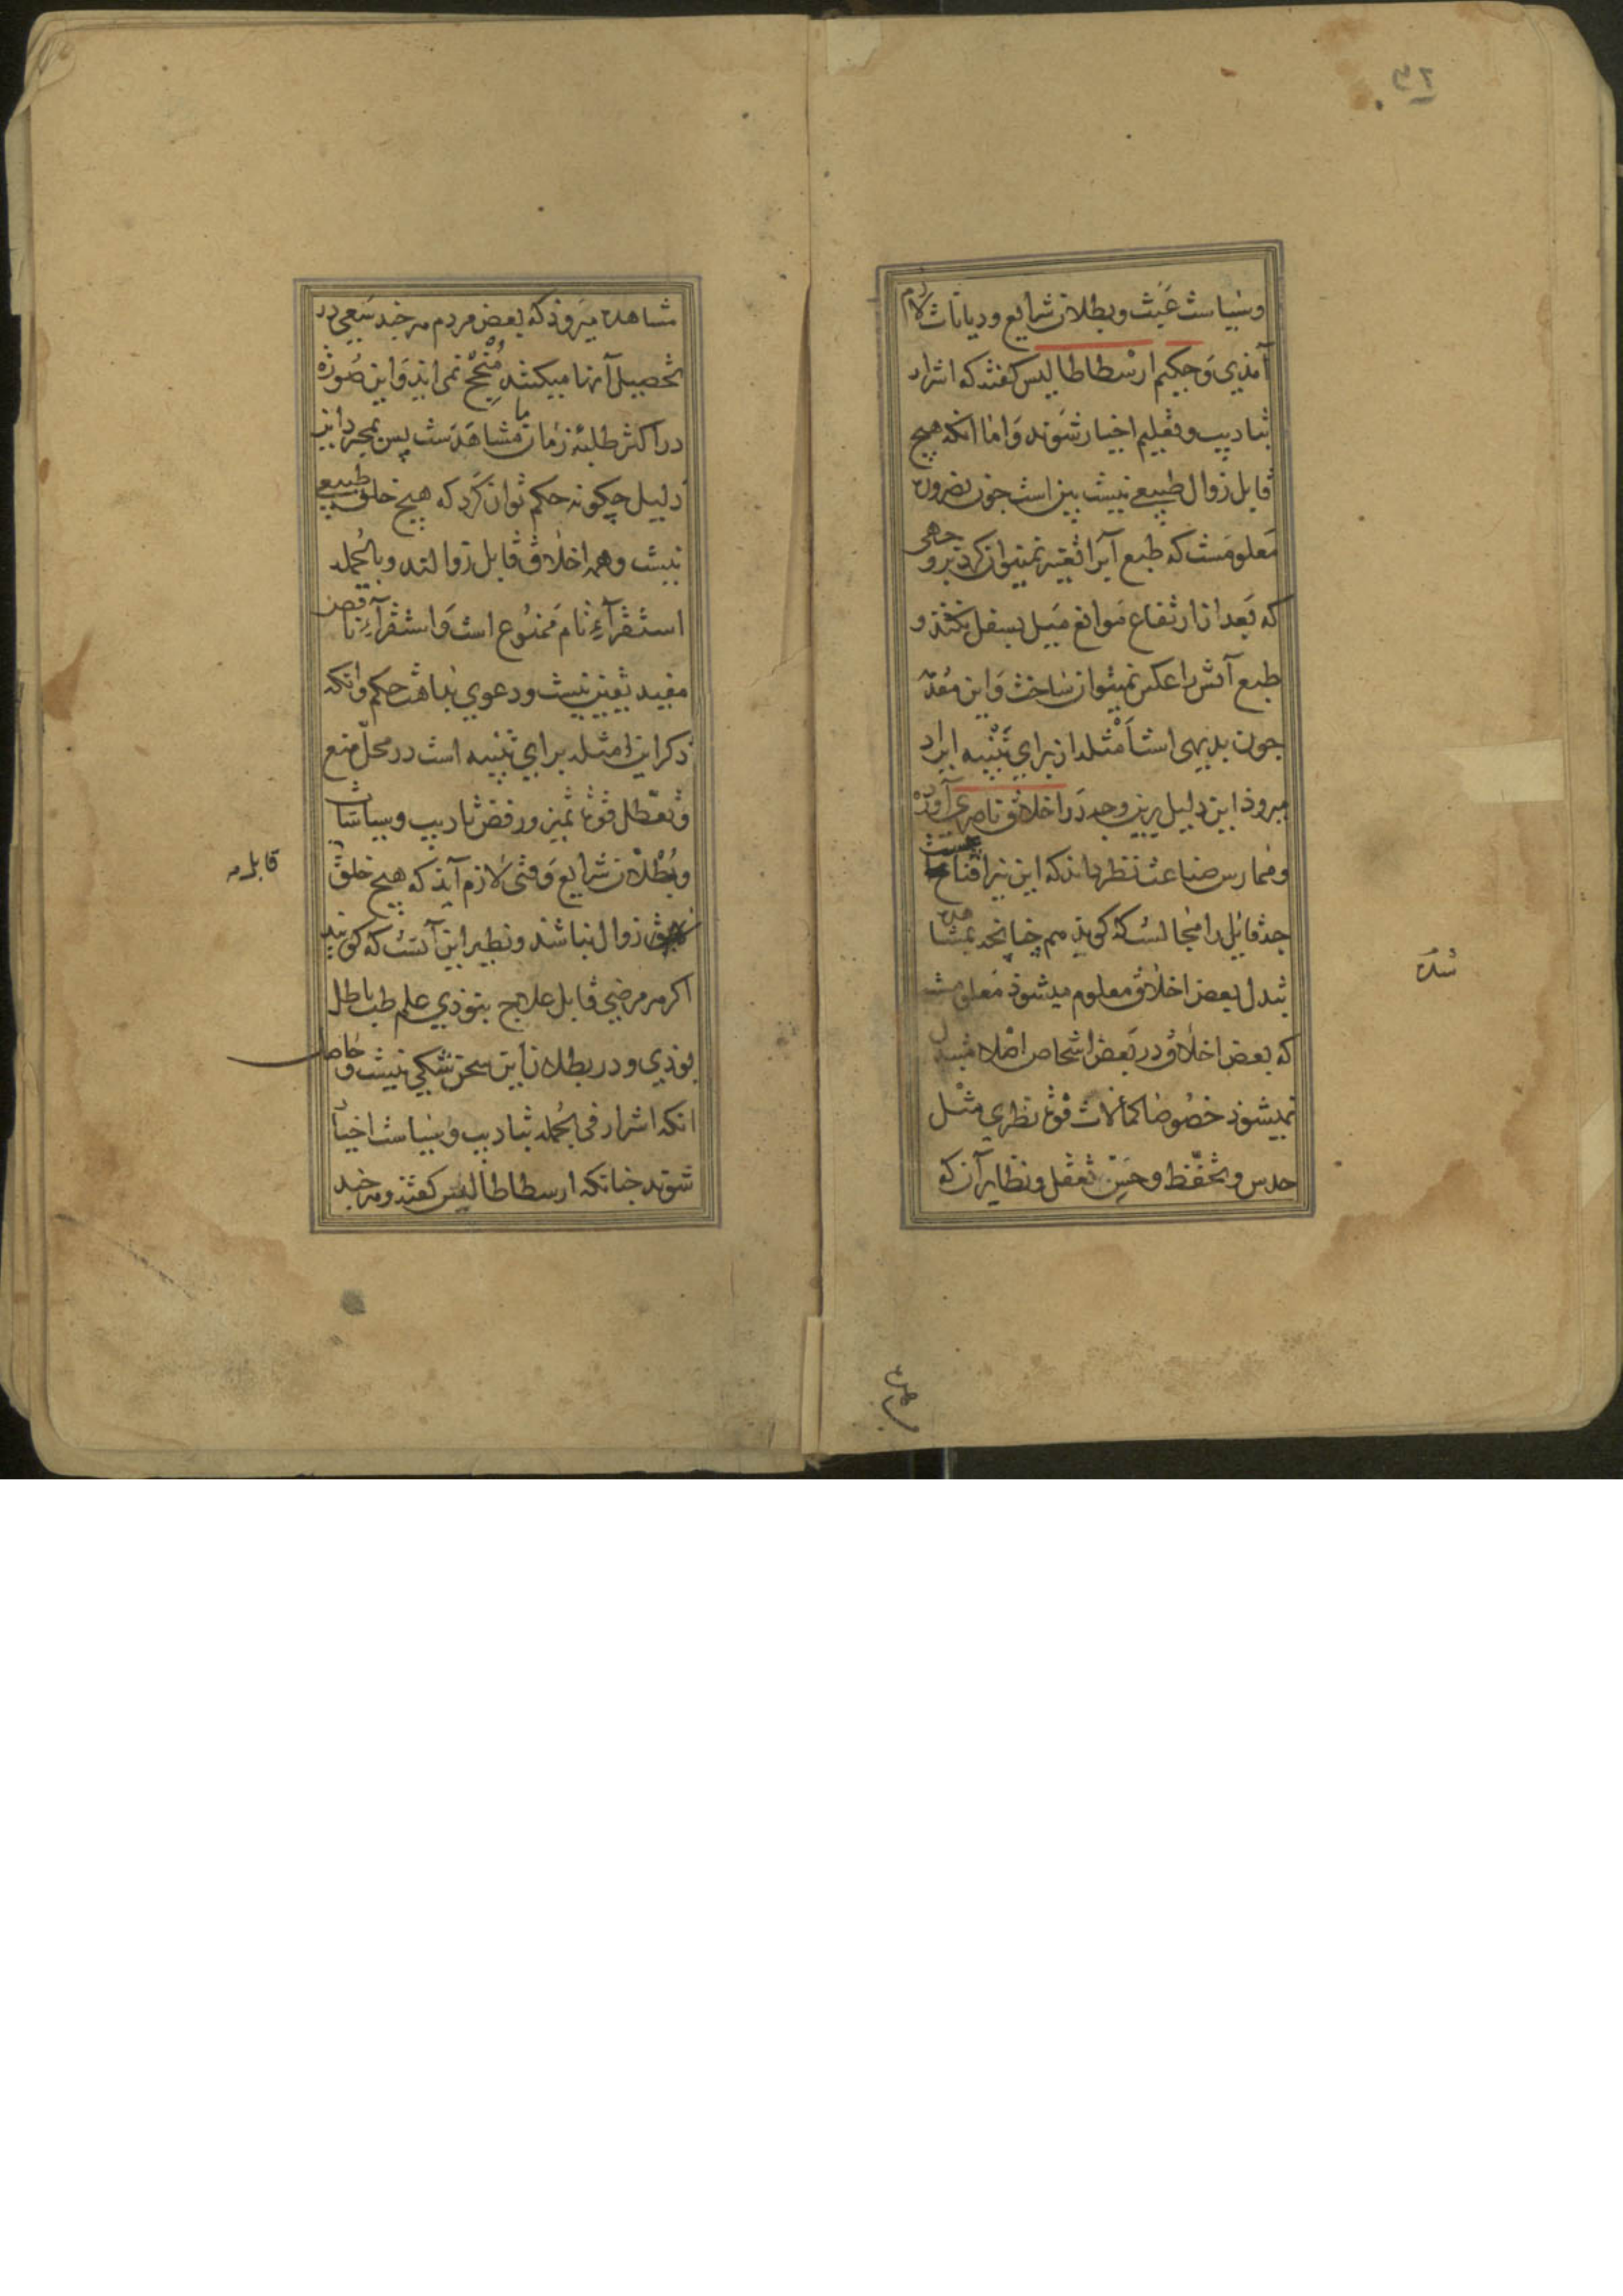 ۳۲
وسیاست عبث وبطلان شرایع ودیانات لازم
آمذی وحکیم ارسطاطالیس کفته که اشرار
بتادیب وتعلیم اخیار شوند واما انکه هیچ
قابل زوال طبیعی نیست بین است جون بضرورت
معلومست که طبع آب را تغییر نمیتوان کرد بر وجهی
که بعد از ارتفاع موانع میل بسفل نکند و
طبع آتش را عکس نمیتوان ساخت واین مقدمه
جون بدیهی است امثله از برای تنبیه ایراد
میروذ این دلیل برین وجه در اخلاق ناصری آورده
وممارس صناعت نظر داند که این نیز اقناعیست
جه قایل را مجالست که کوید هم چنانچه بمشاهده
تبدل بعض اخلاق معلوم میشوذ معلوم شده
که بعض اخلاق در بعض اشخاص اصلا مبدل
نمیشوذ خصوصا کمالات قوة نظری مثل
حدس وتحفظ وحسن تعقل ونظایر آن که
شده
مشاهده میروذ که بعض مردم هر جند سعی در
تحصیل آنها میکنند منجح نمی آید واین صورة
در اکثر طلبه زمان ما مشاهدست پس بمجرد این
دلیل چکونه حکم توان کرد که هیچ خلق طبیعی
نیست وهمه اخلاق قابل زوالند وبالجمله
استقرآء تام ممنوع است واستقرآء ناقص
مفید یقین نیست ودعوی بداهت حکم وانکه
ذکر این امثله برای تنبیه است در محل منع
وتعطل قوة تمیز ورفض تادیب وسیاسات
وبطلان شرایع وقتی لازم آید که هیچ خلق
زوال نباشد ونظیر این آنست که کویند
اکر هر مرضی قابل علاج نبوذی علم طب باطل
بوذی ودر بطلان این سخن شکی نیست وحاصل
انکه اشرار فی الجمله بتادیب وسیاست اخیار
شوند جنانکه ارسطاطالیس کفته وهر جند
قابل